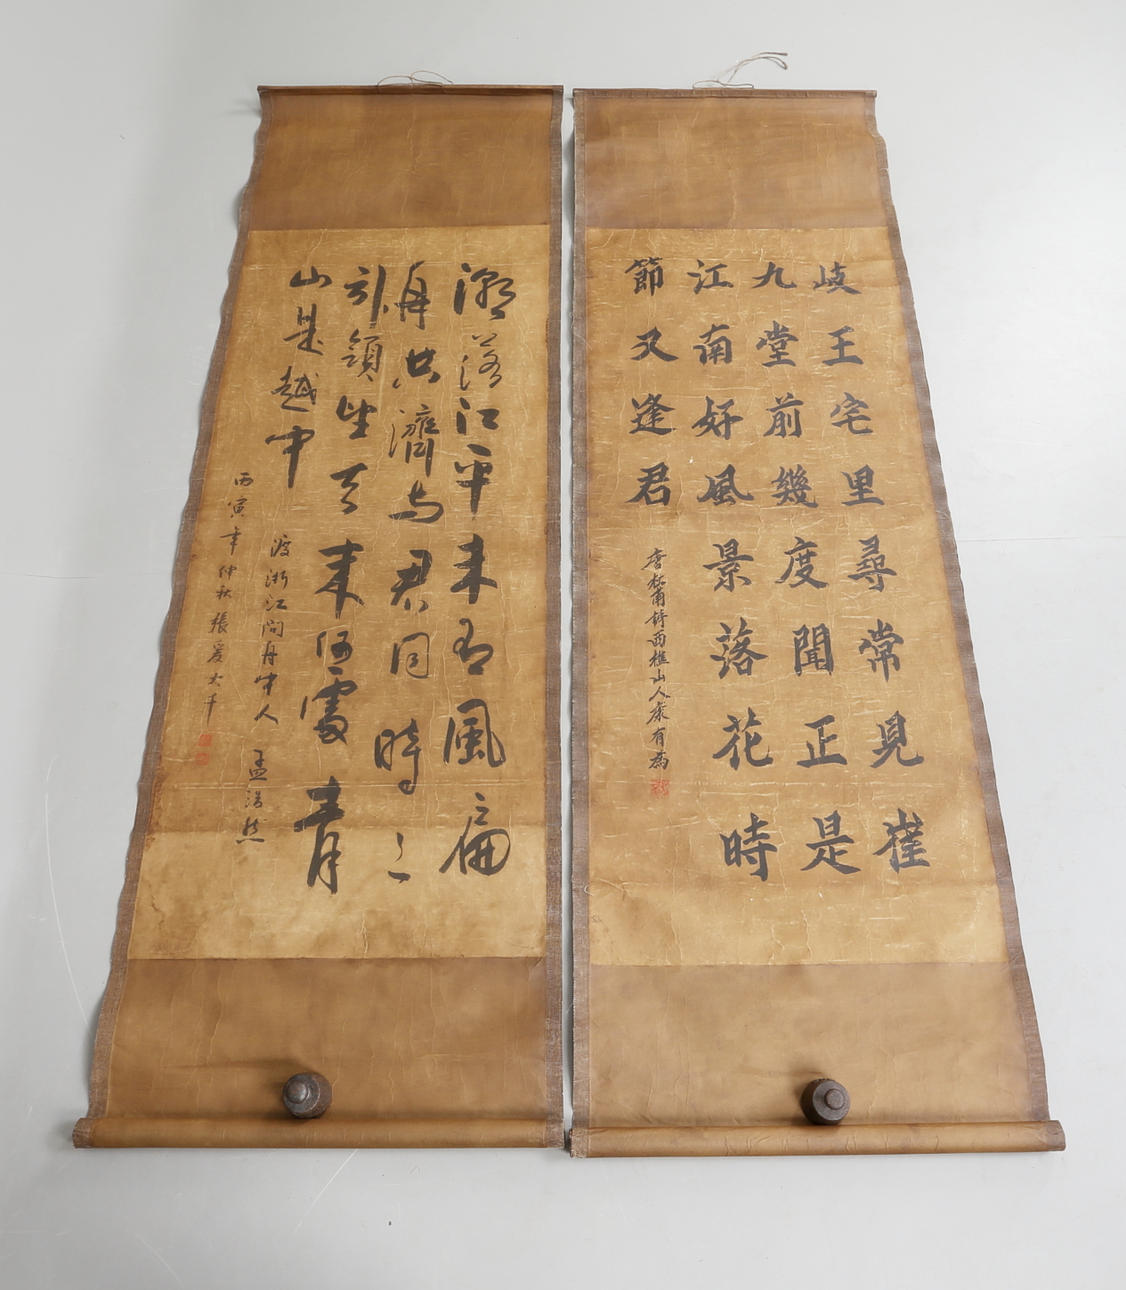 岐王宅里尋常見崔
九堂前幾度聞正是
江南好風景落花時
節又逢君
唐杜甫詩西樵山人康有為
潮落江平未有風扁
舟共濟与君同時々
引領望天末何處青
山是越中
渡浙江問舟中人孟浩然
丙寅年仲秋張爰大千